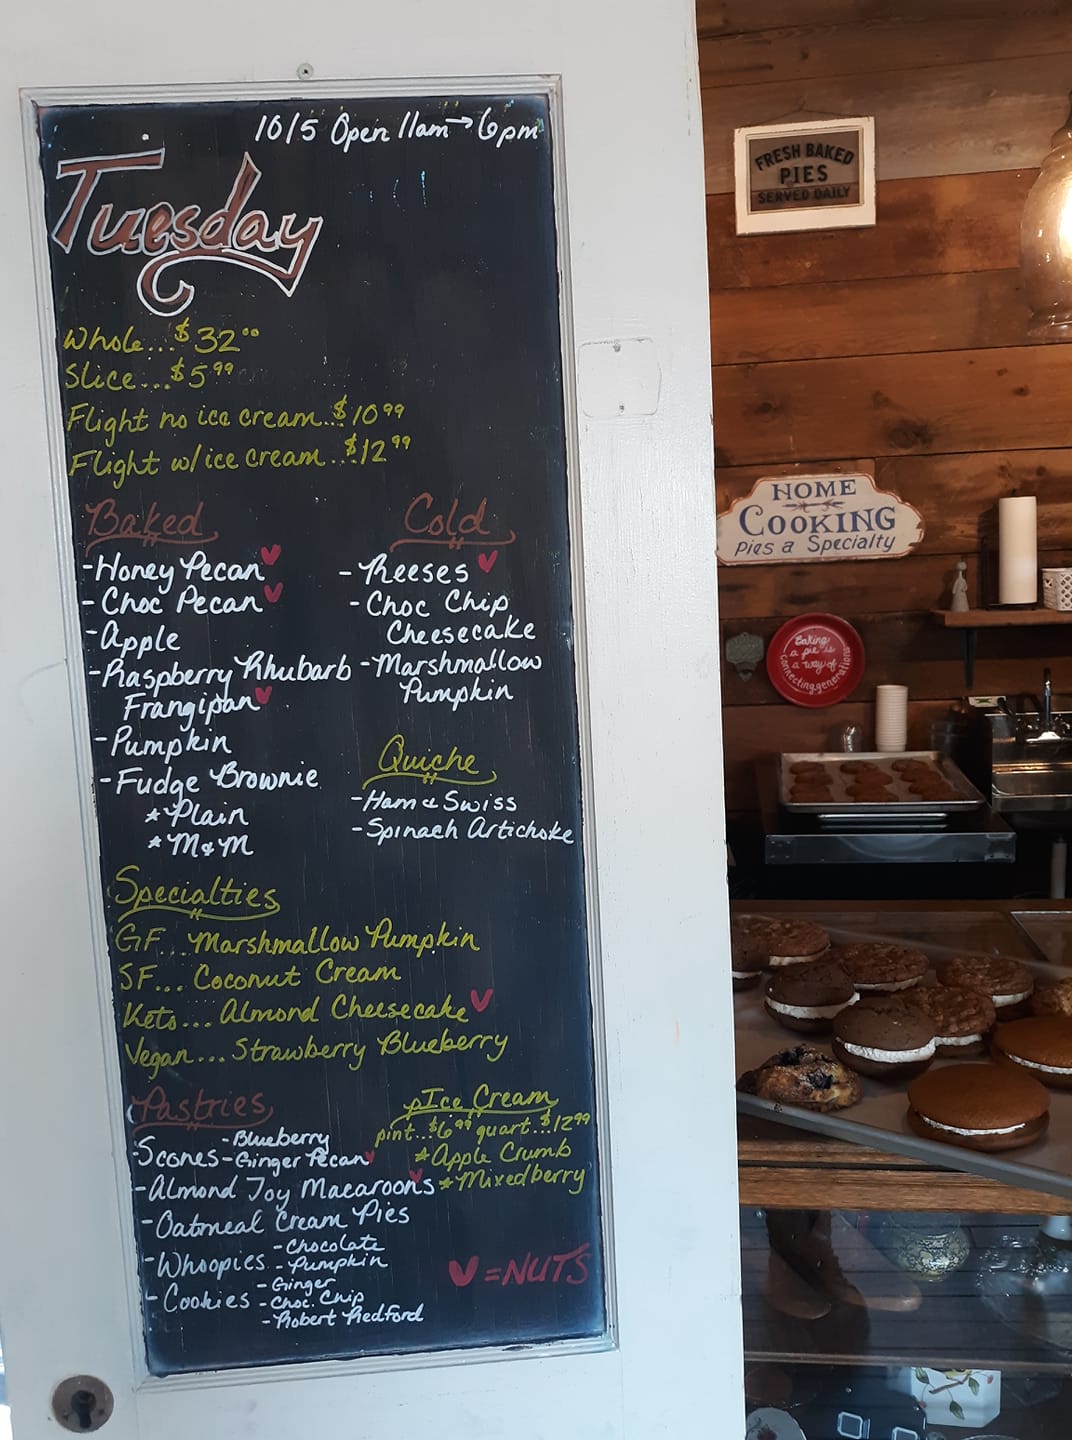 10/5 Open 11am→6pm
Tuesday
Whole...$32⁰⁰
Slice...$5⁹⁹
Flight no ice cream...$10⁹⁹
Flight w/ice cream...$12⁹⁹
Baked
-Honey Pecan ♥
-Choc Pecan ♥
-Apple
-Raspberry Rhubarb
Frangipan ♥
-Pumpkin
-Fudge Brownie
*Plain
*M&M
Cold
-Reeses ♥
-Choc Chip
Cheesecake
-Marshmallow
Pumpkin
Quiche
-Ham & Swiss
-Spinach Artichoke
Specialties
GF... Marshmallow Pumpkin
SF... Coconut Cream
Keto... Almond Cheesecake ♥
Vegan... Strawberry Blueberry
Pastries
-Scones -Blueberry
-Ginger Pecan ♥
-Almond Joy Macaroons ♥
-Oatmeal Cream Pies
-Whoopies -Chocolate
-Pumpkin
-Cookies -Ginger
-Choc. Chip
-Robert Redford
pIce Cream
pint...$6⁹⁹ quart...$12⁹⁹
*Apple Crumb
*Mixedberry
♥=NUTS
FRESH BAKED
PIES
SERVED DAILY
HOME
COOKING
Pies a Specialty
Baking
a pie is
a way of
connecting generations